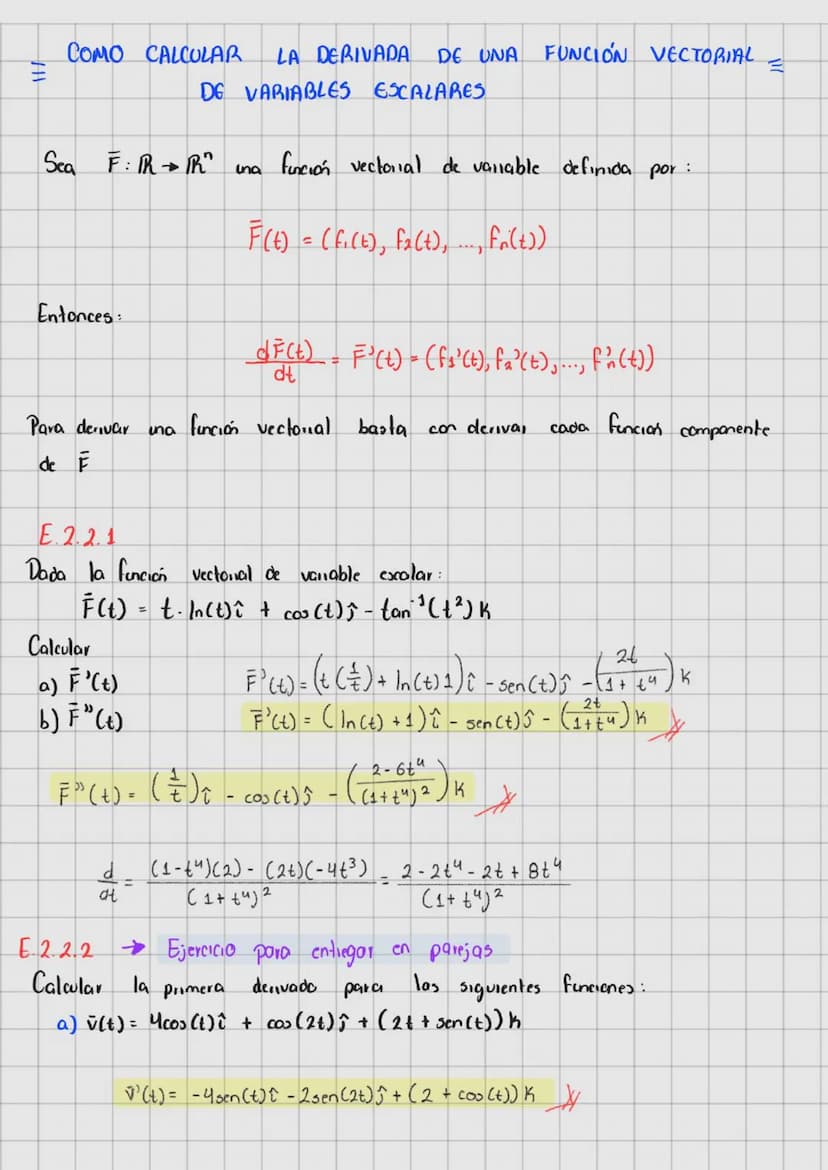 COMO CALCULAR LA DERIVADA DE UNA FUNCIÓN VECTORIAL
DE VARIABLES ESCALARES
Sea F̄: ℝ → ℝⁿ una función vectorial de variable definida por:
F̄(t) = (f₁(t), f₂(t), ..., fₙ(t))
Entonces:
dF̄(t)/dt = F̄'(t) = (f₁'(t), f₂'(t), ..., fₙ'(t))
Para derivar una función vectorial basta con derivar cada función componente
de F̄
E.2.2.1
Dada la función vectorial de variable escalar:
F̄(t) = t·ln(t)î + cos(t)ĵ - tan⁻¹(t²)k
Calcular
a) F̄'(t) F̄'(t) = (t(1/t) + ln(t)1)î - sen(t)ĵ - (2t/(1+t⁴))k
b) F̄''(t) F̄'(t) = (ln(t) + 1)î - sen(t)ĵ - (2t/(1+t⁴))k
F̄''(t) = (1/t)î - cos(t)ĵ - ((2-6t⁴)/(1+t⁴)²)k
d/dt = ((1-t⁴)(2) - (2t)(-4t³))/(1+t⁴)² = (2-2t⁴-2t+8t⁴)/(1+t⁴)²
E.2.2.2 → Ejercicio para entregar en parejas
Calcular la primera derivada para las siguientes funciones:
a) v̄(t) = 4cos(t)î + cos(2t)ĵ + (2t + sen(t))k
v̄'(t) = -4sen(t)î - 2sen(2t)ĵ + (2 + cos(t))k